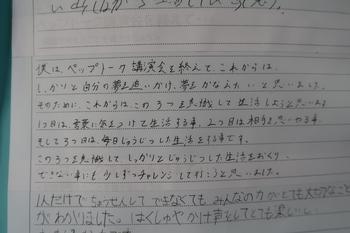 僕は、ペップトーク講演会を終えて、これからは、
しっかりと自分の夢を追いかけ、夢をかなえたいと思いました。
そのために、これからはこの3つを意識して生活しようと思います
1つ目は、言葉に気をつけて生活する事、2つ目は相手を思いやる事、
そして3つ目は、毎日じゅうじつした生活をする事です。
この3つを意識して、しっかりとじゅうじつした生活をおくり、
できない事にも少しずつチャレンジして行こうと思いました。
1人だけでちょうせんしてできなくても、みんなの力がとても大切なこと
がわかりました。はくしゅやかけ声をしてとても楽しいし